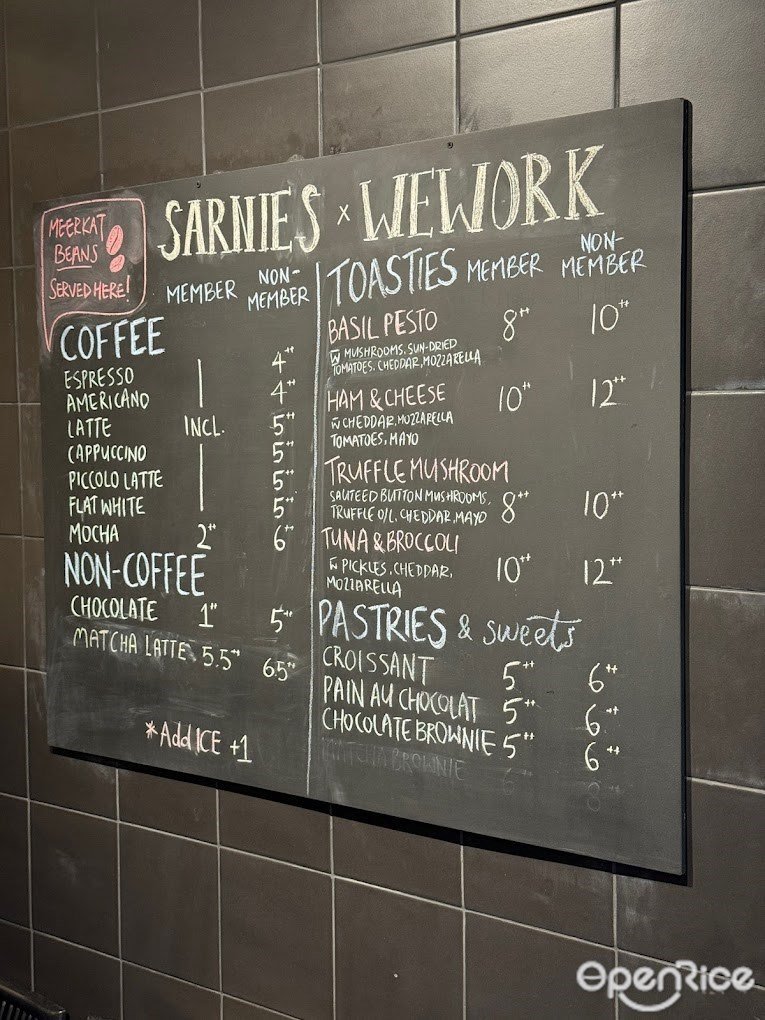 SARNIES x WEWORK
MEERKAT
BEANS
SERVED HERE!
MEMBER NON-
MEMBER
COFFEE
ESPRESSO 4++
AMERICANO 4++
LATTE INCL. 5++
CAPPUCCINO 5++
PICCOLO LATTE 5++
FLAT WHITE 5++
MOCHA 2++ 6++
NON-COFFEE
CHOCOLATE 1++ 5++
MATCHA LATTE 5.5++ 6.5++
*Add ICE +1
TOASTIES MEMBER NON-
MEMBER
BASIL PESTO 8++ 10++
W MUSHROOMS, SUN-DRIED
TOMATOES, CHEDDAR, MOZZARELLA
HAM & CHEESE 10++ 12++
W CHEDDAR, MOZZARELLA
TOMATOES, MAYO
TRUFFLE MUSHROOM
SAUTEED BUTTON MUSHROOMS, 8++ 10++
TRUFFLE OIL, CHEDDAR, MAYO
TUNA & BROCCOLI
W PICKLES, CHEDDAR, 10++ 12++
MOZZARELLA
PASTRIES & sweets
CROISSANT 5++ 6++
PAIN AU CHOCOLAT 5++ 6++
CHOCOLATE BROWNIE 5++ 6++
MATCHA BROWNIE 6 8
OPENRICE